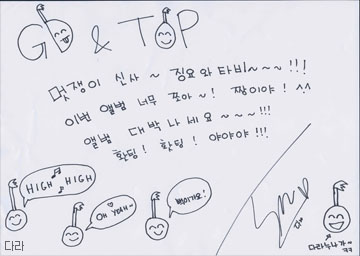 GD & TOP
멋쟁이 신사 ~ 징요와 타비~~~!!!
이번 앨범 너무 쪼아~! 짱이야! ^^
앨범 대박 나세요 ~~~!!!
화팅! 화팅! 야야야!!!
HIGH HIGH
OH YEAH~
뻑이가요!
다라누나가~
ㅋㅋ
다라